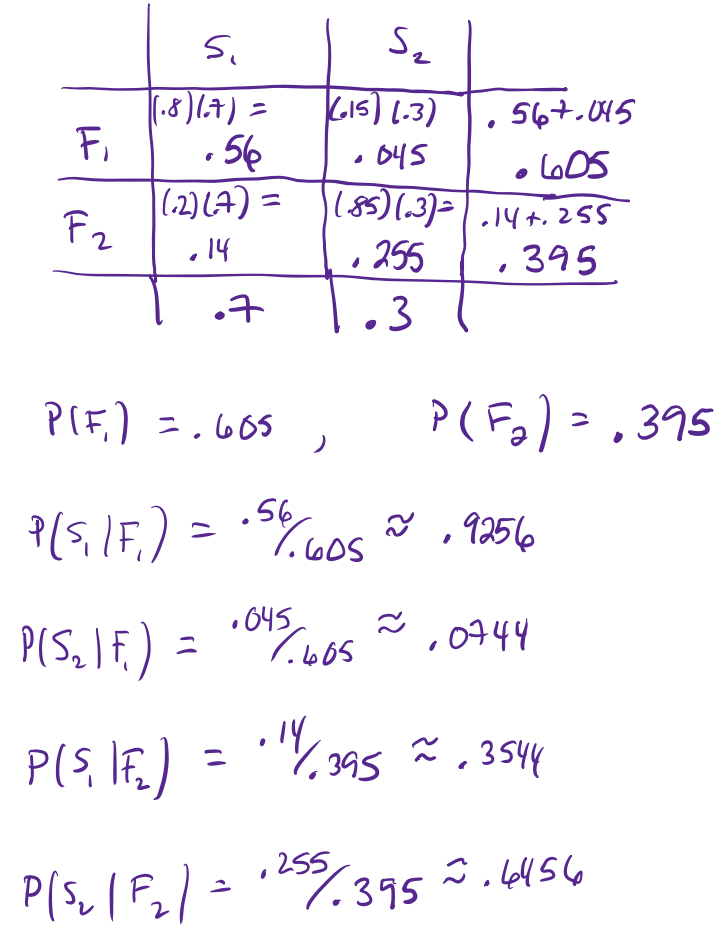 S₁ S₂
(.8)(.7) = (.15)(.3) .56+.045
F₁ .56 .045 .605
(.2)(.7) = (.85)(.3)= .14+.255
F₂ .14 .255 .395
.7 .3
P(F₁) = .605 , P(F₂) = .395
P(S₁|F₁) = .56/.605 ≈ .9256
P(S₂|F₁) = .045/.605 ≈ .0744
P(S₁|F₂) = .14/.395 ≈ .3544
P(S₂|F₂) = .255/.395 ≈ .6456